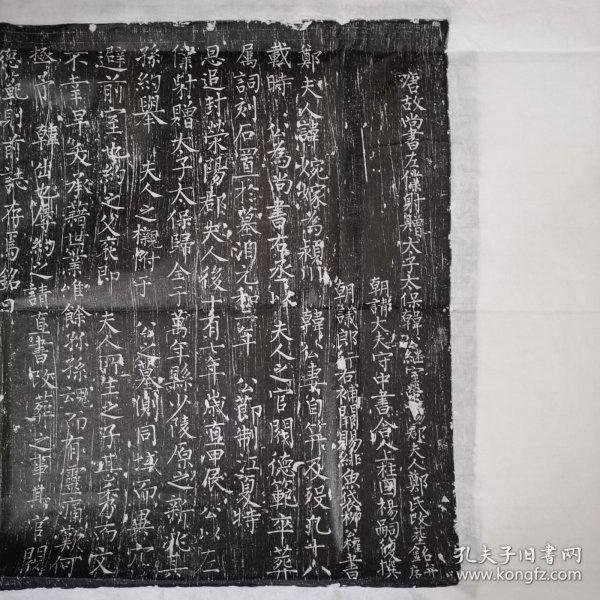 唐故尚書左僕射贈太子太保韓公繼室滎陽郡夫人鄭氏改葬銘并序
朝議大夫守中書舍人上柱國楊嗣復撰
朝議郎行右補闕賜緋魚袋柳公權書
鄭夫人諱婉嫁為潁川韓公妻自笄及歿凡十八
載時公為尚書右丞以夫人之官閥德範卒葬
属詞刻石置於墓洎元和年公節制江夏特
恩追封滎陽郡夫人後十有七年歲直甲辰公以左
僕射贈太子太保歸全于萬年縣少陵原之新兆其
孫約舉夫人之櫬祔于公之墓側同域而異穴
避前室也約之父衮即夫人所生之子其秀而文
不幸早夭承藉世業唯餘孫魂而有靈痛歎何
極
德範則前誌存焉銘曰
孔夫子旧书网
www.kongfz.com